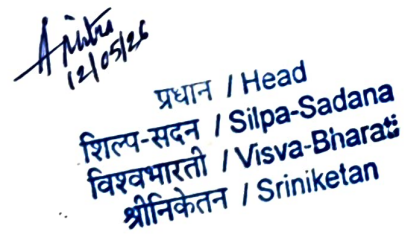 12/05/26
प्रधान / Head
शिल्प-सदन / Silpa-Sadana
विश्वभारती / Visva-Bharati
श्रीनिकेतन / Sriniketan